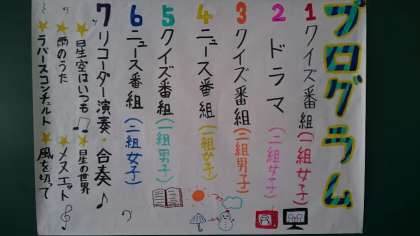 プログラム
1 クイズ番組(一組女子)
2 ドラマ(二組女子)
3 クイズ番組(二組男子)
4 ニュース番組(二組女子)
5 クイズ番組(一組男子)
6 ニュース番組(二組女子)
7 リコーダー演奏・合奏♪
★星空はいつも♫ ★星の世界
★雨のうた ★メヌエット
★ラバースコンチェルト ★風を切って